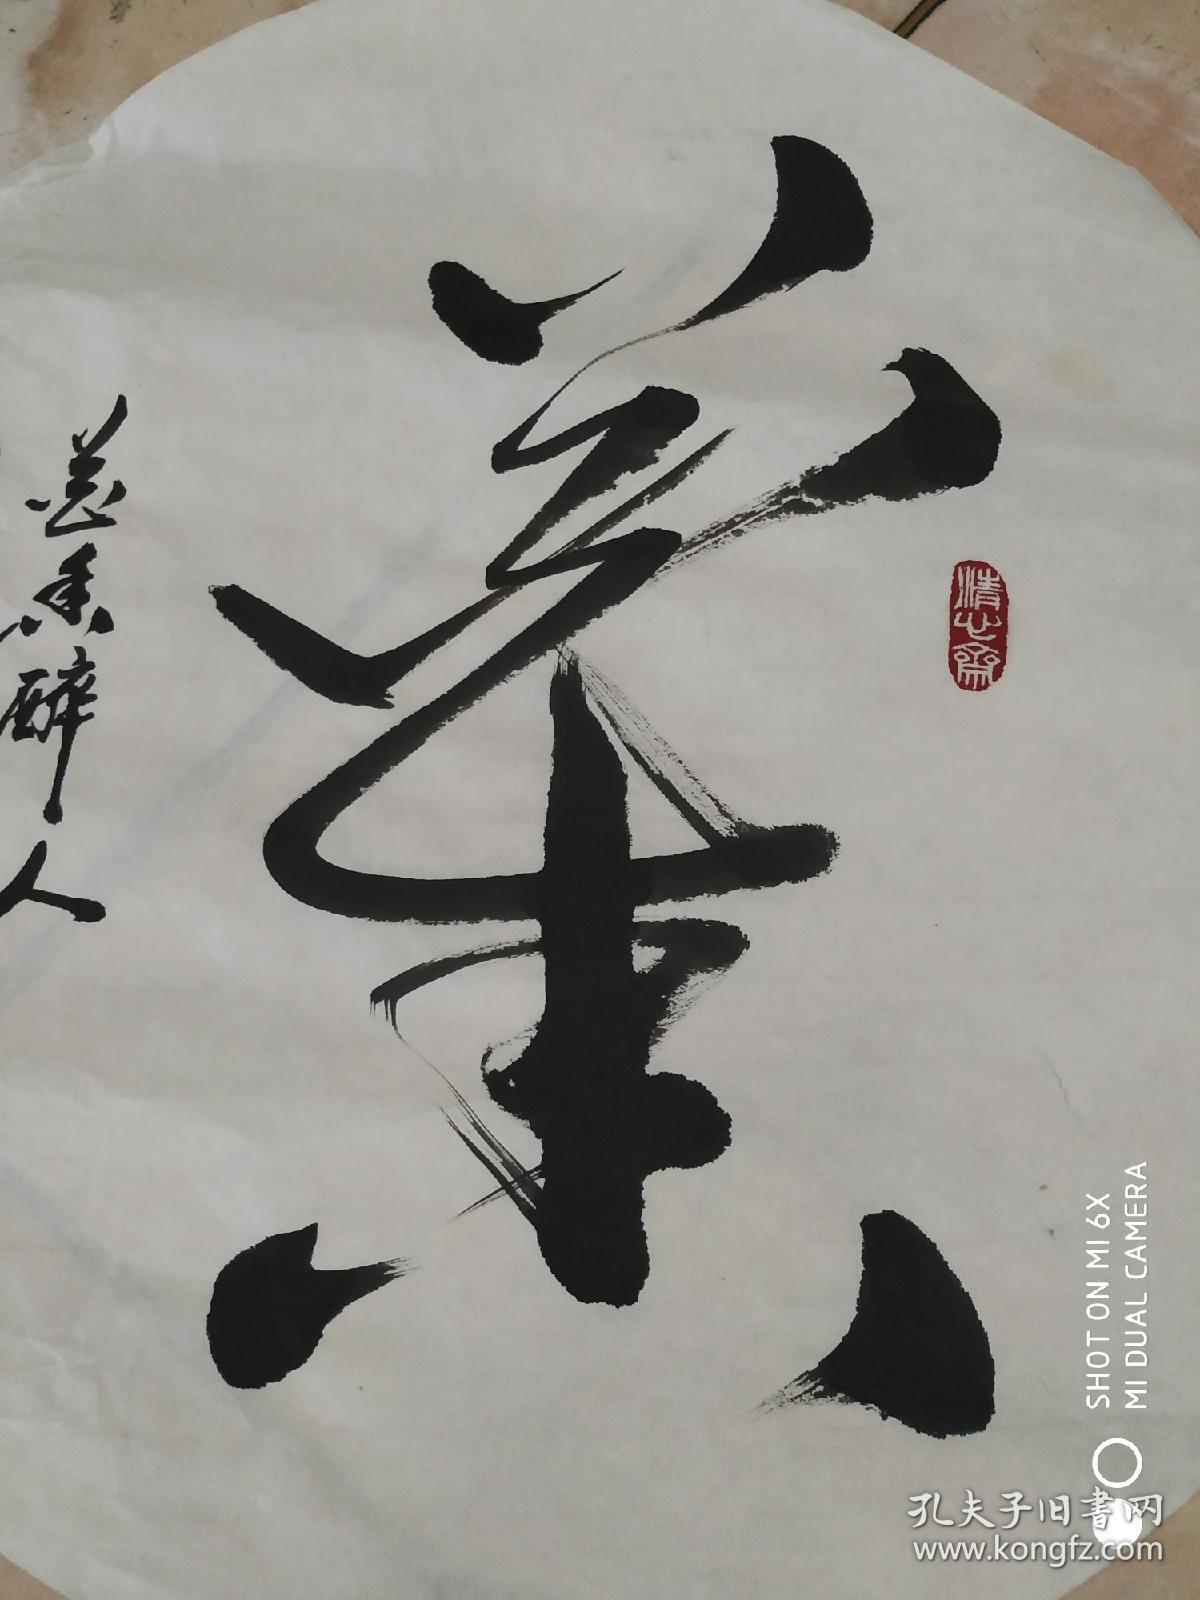 香醉人
清心齋
SHOT ON MI 6X
MI DUAL CAMERA
孔夫子旧書网
www.kongfz.com